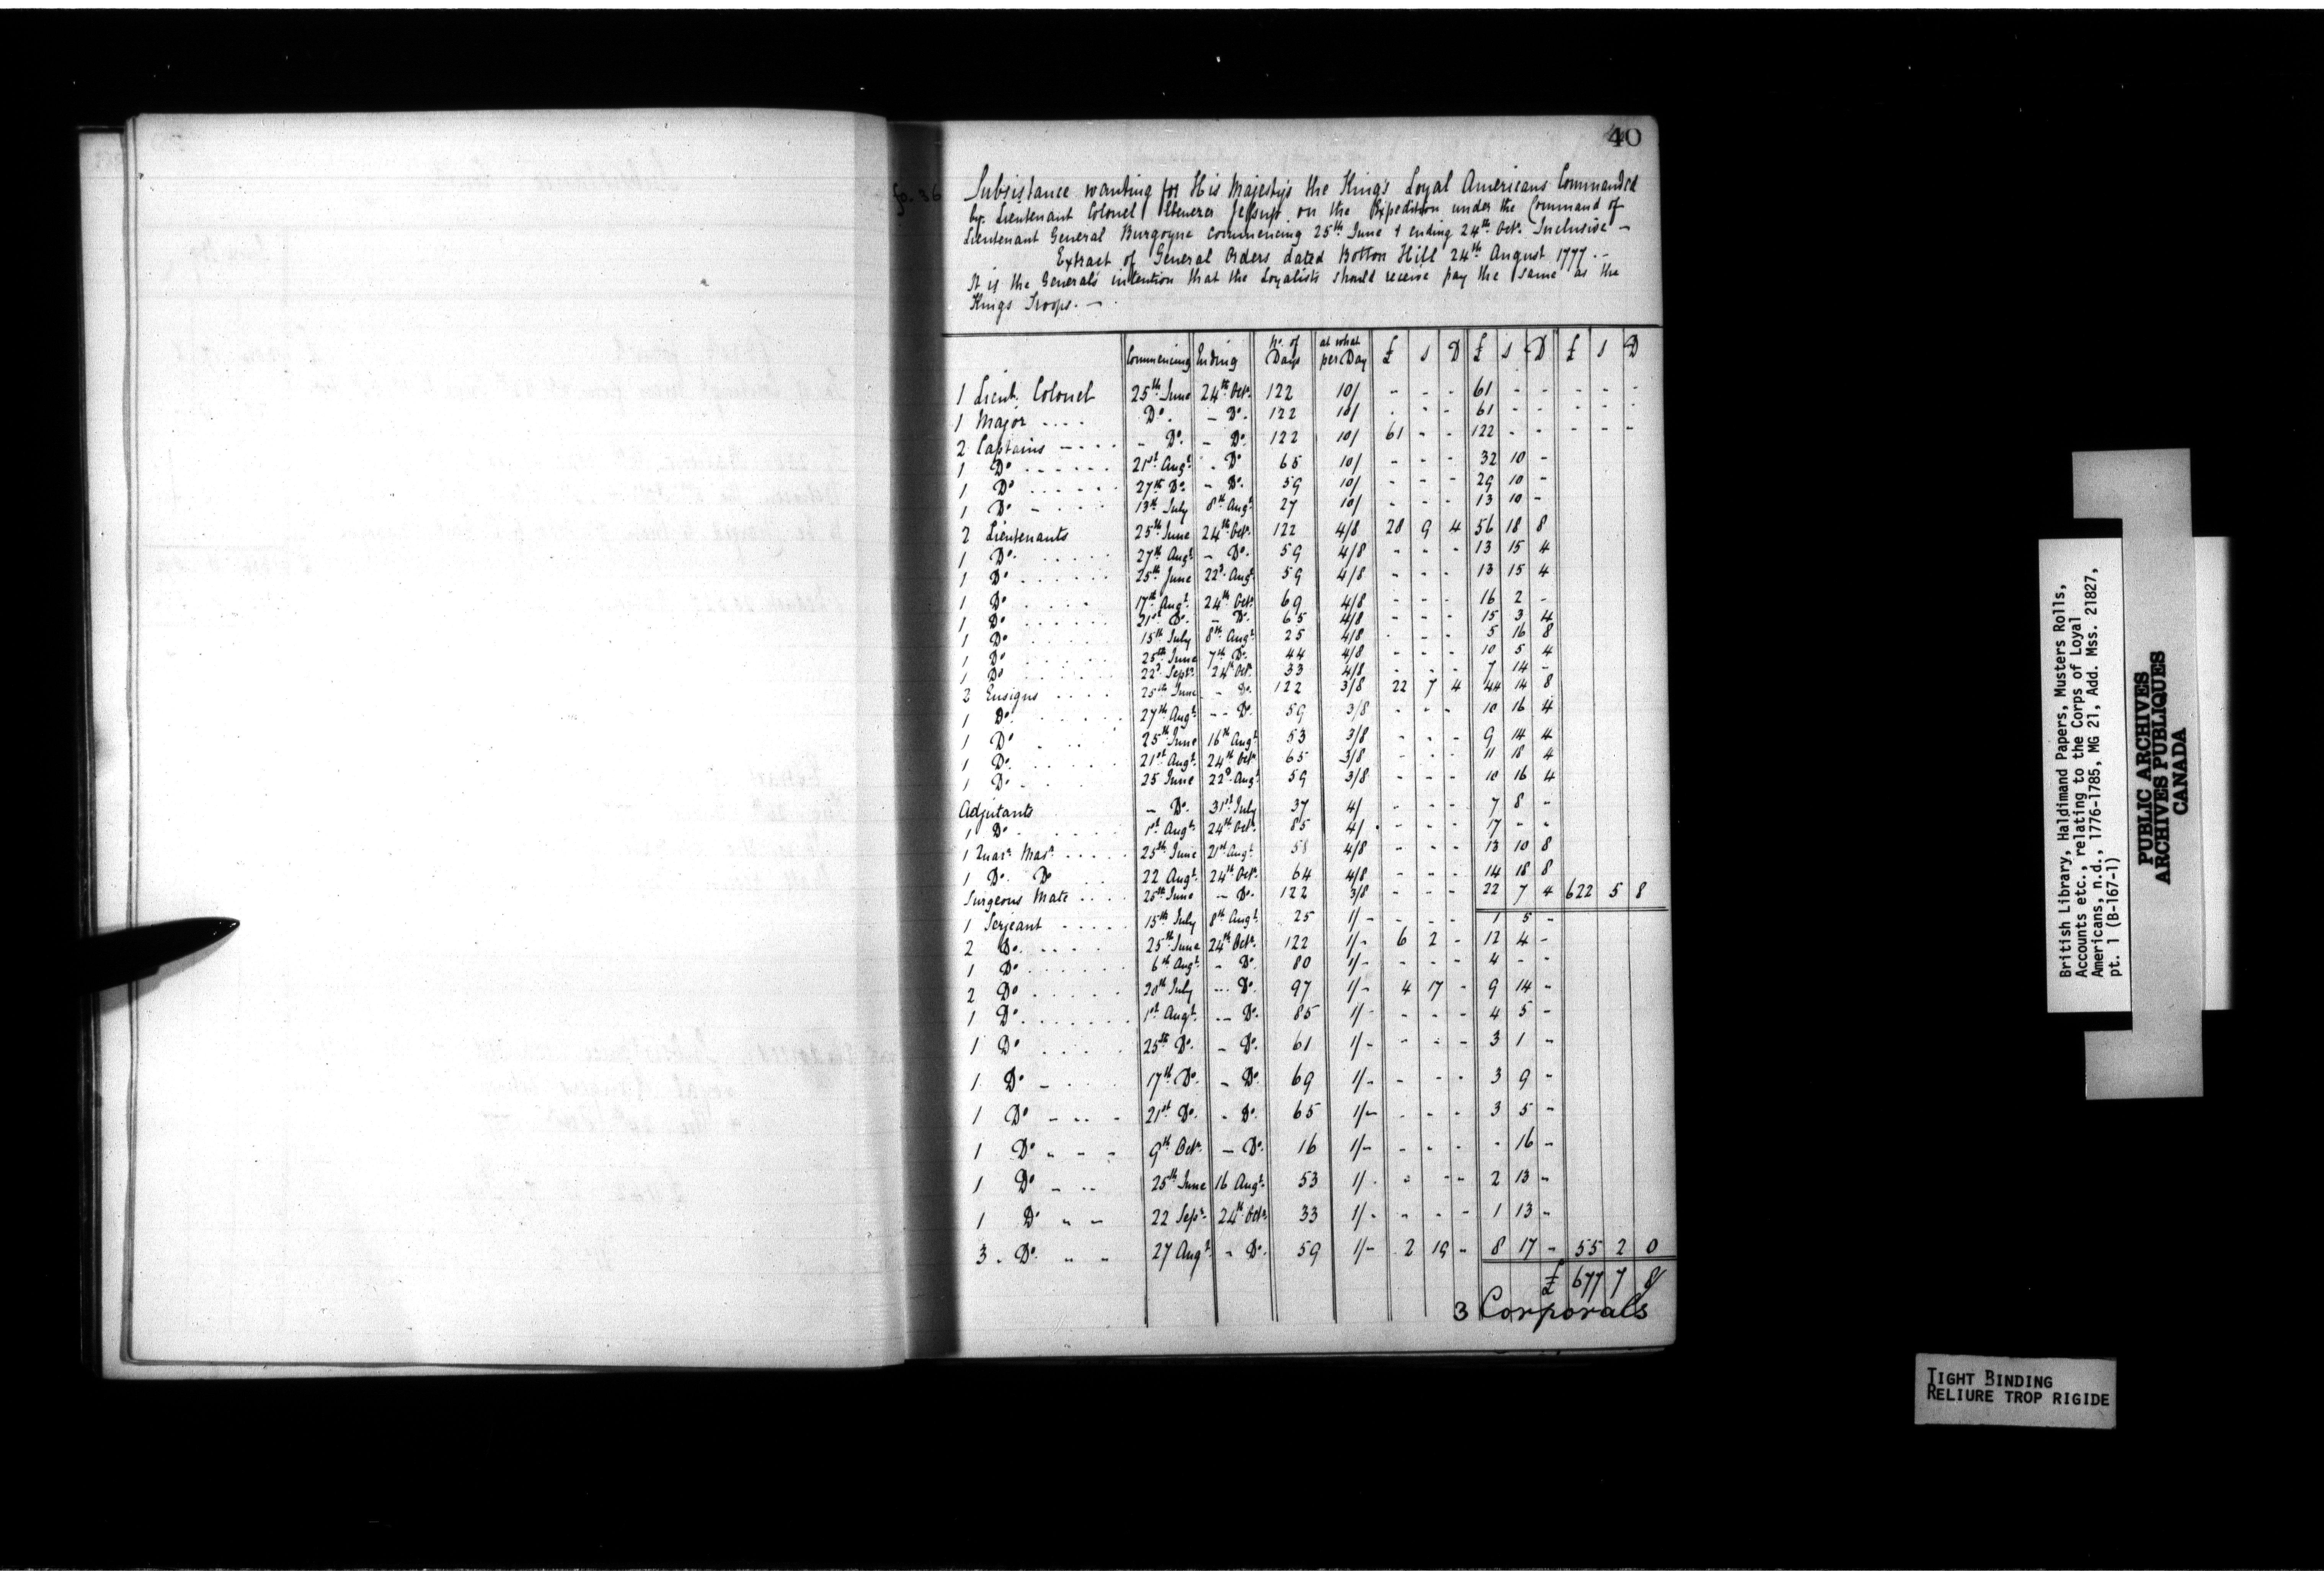 40
fo. 36
Subsistance wanting for His Majestys the King's Loyal Americans Commanded
by Lieutenant Colonel Ebenezer Jessup on the Expedition under the Command of
Lieutenant General Burgoyne Commencing 25th June & ending 24th Octr. Inclusive —
Extract of General Orders dated Botton Hill 24th August 1777. —
It is the Generals intention that the Loyalists should receive pay the same as the
Kings Troops. —
Commencing Ending No. of Days at what per Day £ s D £ s D £ s D
1 Lieut. Colonel 25th June 24th Octr. 122 10/ - - - 61 - - - - -
1 Major .... Do. - Do. 122 10/ - - - 61 - - - - -
2 Captains - ... - Do. - Do. 122 10/ 61 - - 122 - - - - -
1 Do ...... 21st Augt. - Do 65 10/ - - - 32 10 -
1 Do ...... 27th Do. - Do. 59 10/ - - - 29 10 -
1 Do - .... 13th July 8th Augt. 27 10/ - - - 13 10 -
2 Lieutenants 25th June 24th Octr. 122 4/8 28 9 4 56 18 8
1 Do. ..... 27th Augt. - Do. 59 4/8 - - - 13 15 4
1 Do ...... 25th June 22d Augt. 59 4/8 - - - 13 15 4
1 Do ..... 17th Augt. 24th Octr. 69 4/8 - - - 16 2 -
1 Do ...... 21st Do. - Do. 65 4/8 - - - 15 3 4
1 Do ...... 15th July 8th Augt. 25 4/8 - - - 5 16 8
1 Do ...... 25th June 7th Do. 44 4/8 - - - 10 5 4
1 Do ...... 22d Septr. 24th Octr. 33 4/8 - - - 7 14 -
2 Ensigns .... 25th June - Do. 122 3/8 22 7 4 44 14 8
1 Do. ...... 27th Augt. -- Do. 59 3/8 - - - 10 16 4
1 Do .... 25th June 16th Augt. 53 3/8 - - - 9 14 4
1 Do. ..... 21st Augt. 24th Octr. 65 3/8 - - - 11 18 4
1 Do - ... 25 June 22d Augt. 59 3/8 - - - 10 16 4
Adjutants - Do. 31st July 37 4/ - - - 7 8 -
1 Do. ..... 1st Augt. 24th Octr. 85 4/. - - - 17 - -
1 Quar. Masr. ..... 25th June 21st Augt. 58 4/8 - - - 13 10 8
1 Do. Do .. 22 Augt. 24th Octr. 64 4/8 - - - 14 18 8
Surgeons Mate .... 25th June - Do. 122 3/8 - - - 22 7 4 622 5 8
1 Serjeant ..... 15th July 8th Augt. 25 1/- - - - 1 5 -
2 Do. .... 25th June 24th Octr. 122 1/- 6 2 - 12 4 -
1 Do ...... 6th Augt. - Do. 80 1/- - - - 4 - -
2 Do ..... 20th July ... Do. 97 1/- 4 17 - 9 14 -
1 Do ....... 1st Augt. -- Do. 85 1/- - - - 4 5 -
1 Do .... 25th Do. - Do. 61 1/- - - - 3 1 -
1 Do - ... 17th Do. - Do. 69 1/- - - - 3 9 -
1 Do - - - - 21st Do. - Do. 65 1/- - - - 3 5 -
1 Do " - - 9th Octr. - Do. 16 1/- - - - - 16 -
1 Do - -- 25th June 16 Augt. 53 1/- - - - 2 13 -
1 Do " - 22 Sepr. 24th Octr. 33 1/- - - - 1 13 -
3 . Do. " " 27 Augt. - Do. 59 1/- 2 19 - 8 17 - 55 2 0
£ 677 7 8
3 Corporals
British Library, Haldimand Papers, Musters Rolls,
Accounts etc., relating to the Corps of Loyal
Americans, n.d., 1776-1785, MG 21, Add. Mss. 21827,
pt. 1 (B-167-1)
PUBLIC ARCHIVES
ARCHIVES PUBLIQUES
CANADA
TIGHT BINDING
RELIURE TROP RIGIDE